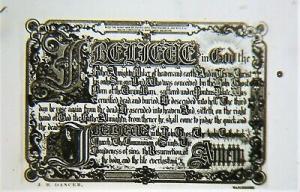 I BELIEVE in God the
Father Almighty Maker of heaven and earth And in Jesus Christ his
only Son our Lord Who was conceived by the Holy Ghost Born
of the Virgin Mary, suffered under Pontius Pilate, Was
crucified dead and buried He descended into hell. The third
day he rose again from the dead He ascended into heaven And sitteth on the right
hand of God the Father Almighty from thence he shall come to judge the quick and
the dead
I BELIEVE in the Holy Ghost The holy Catholic
Church The Communion of Saints The
Forgiveness of sins The Resurrection of
the body, and the life everlasting
Amen
J. B. DANCER.